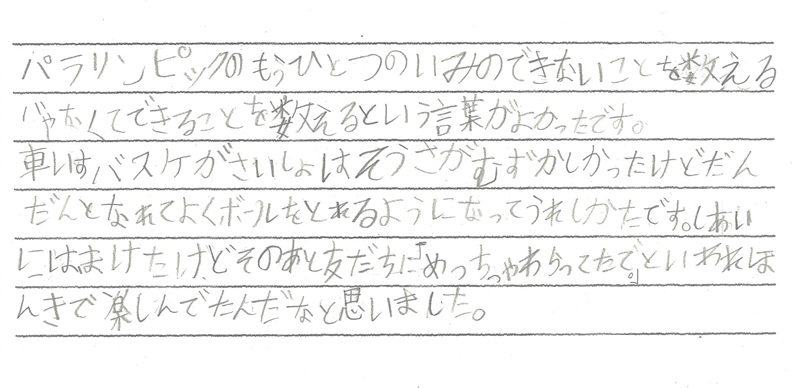 パラリンピックのもうひとつのいみのできないことを数える
じゃなくてできることを数えるという言葉がよかったです。
車いすバスケがさいしょはそうさがむずかしかったけどだん
だんとなれてよくボールをとれるようになってうれしかたです。しあい
にはまけたけどそのあと友だちに「めっちゃわらってたで。」といわれほ
んきで楽しんでたんだなと思いました。